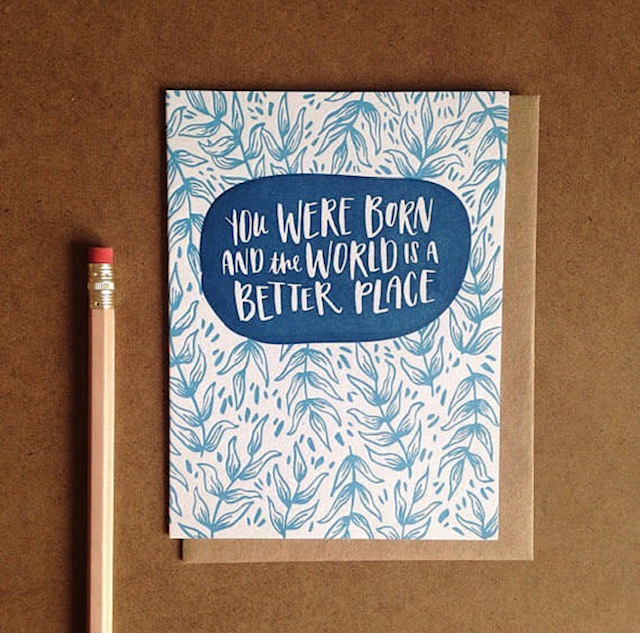 YOU WERE BORN
AND the WORLD IS A
BETTER PLACE